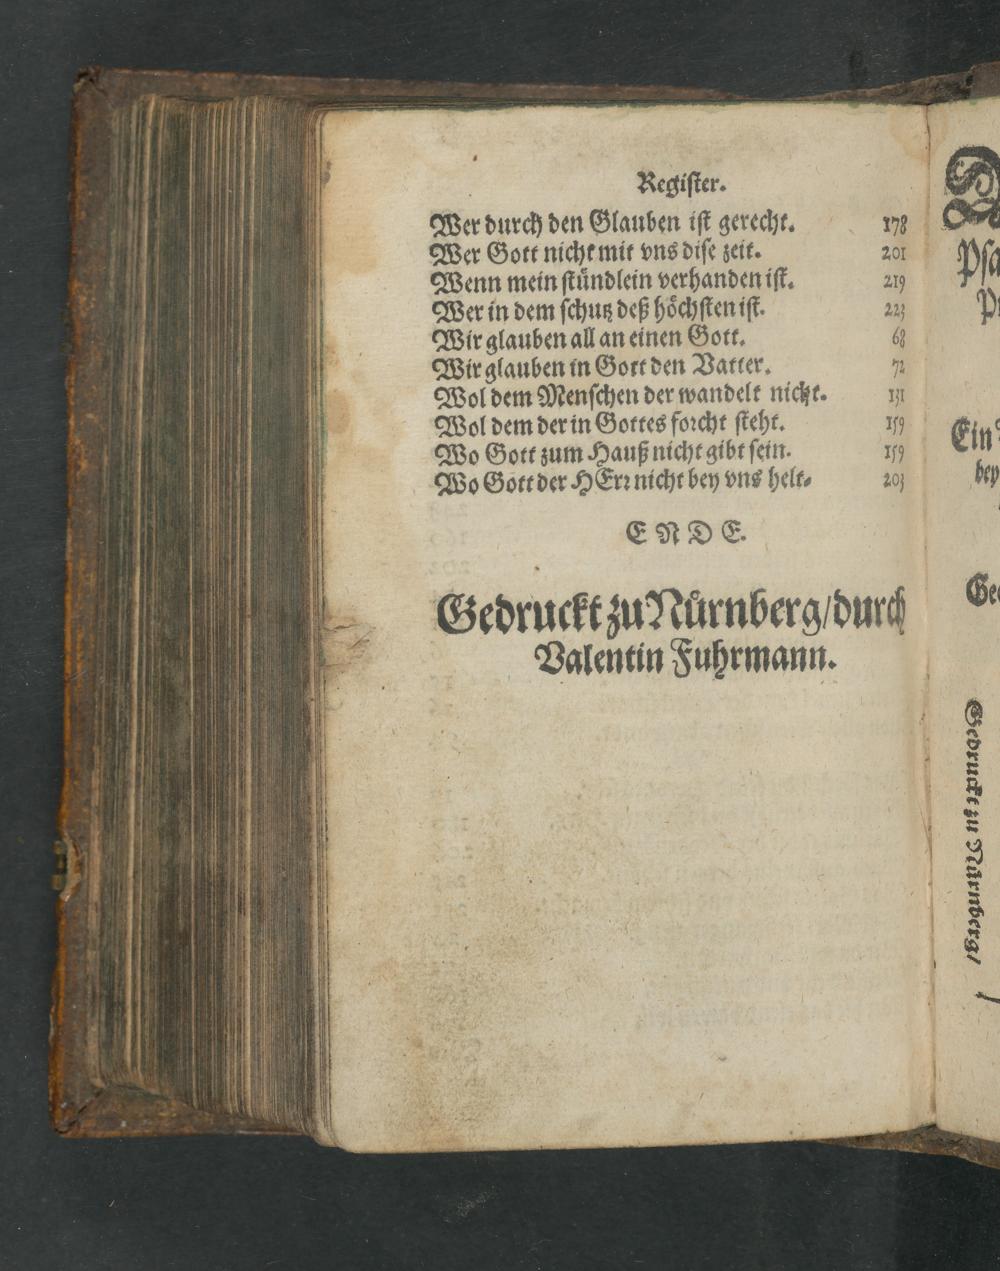 Register.
Wer durch den Glauben ist gerecht. 178
Wer Gott nicht mit vns dise zeit. 201
Wenn mein stündlein verhanden ist. 219
Wer in dem schutz deß höchsten ist. 223
Wir glauben all an einen Gott. 68
Wir glauben in Gott den Vatter. 72
Wol dem Menschen der wandelt nicht. 131
Wol dem der in Gottes forcht steht. 159
Wo Gott zum Hauß nicht gibt sein. 159
Wo Gott der HErr nicht bey vns helt. 203
ENDE.
Gedruckt zu Nürnberg/durch
Valentin Fuhrmann.
Psa
Ein
bey
Ge
Gedruckt zu Nürnberg/